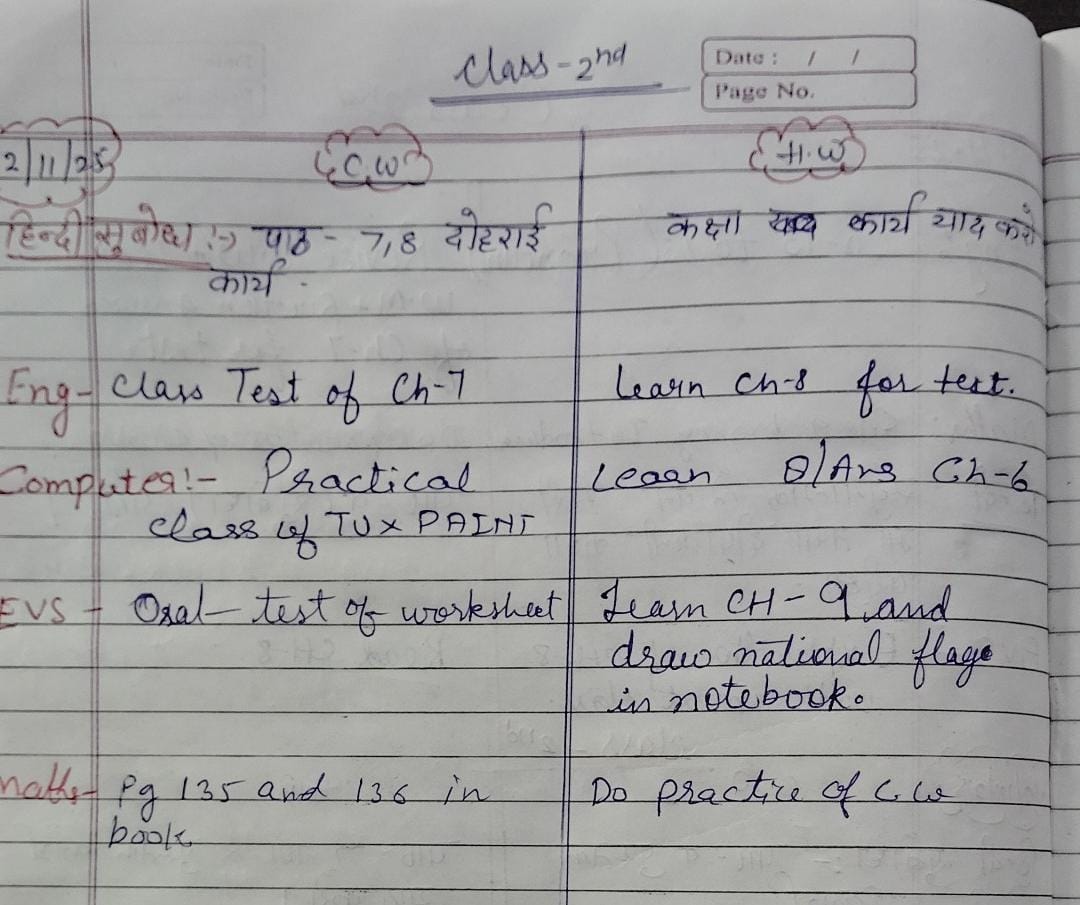 Class - 2nd
Date : / /
Page No.
2/11/25
C.W
H.W
हिन्दी सुबोध :-> पाठ - 7,8 दोहराई
कार्य -
कक्षा कार्य याद करो
Eng - Class Test of Ch-7
Learn Ch-8 for test.
Computer:- Practical
class of TUX PAINT
Learn Q/Ans Ch-6
EVS - Oral - test of worksheet
Learn CH - 9 and
draw national flag
in notebook.
Maths - Pg 135 and 136 in
book
Do practice of C.W